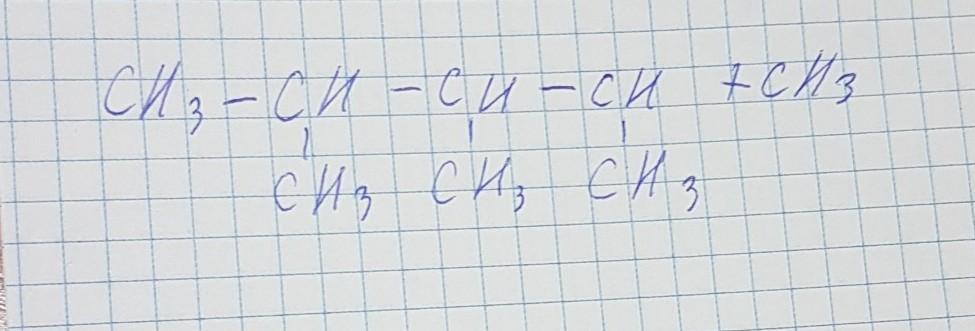 CH3 - CH - CH - CH + CH3
CH3 CH3 CH3